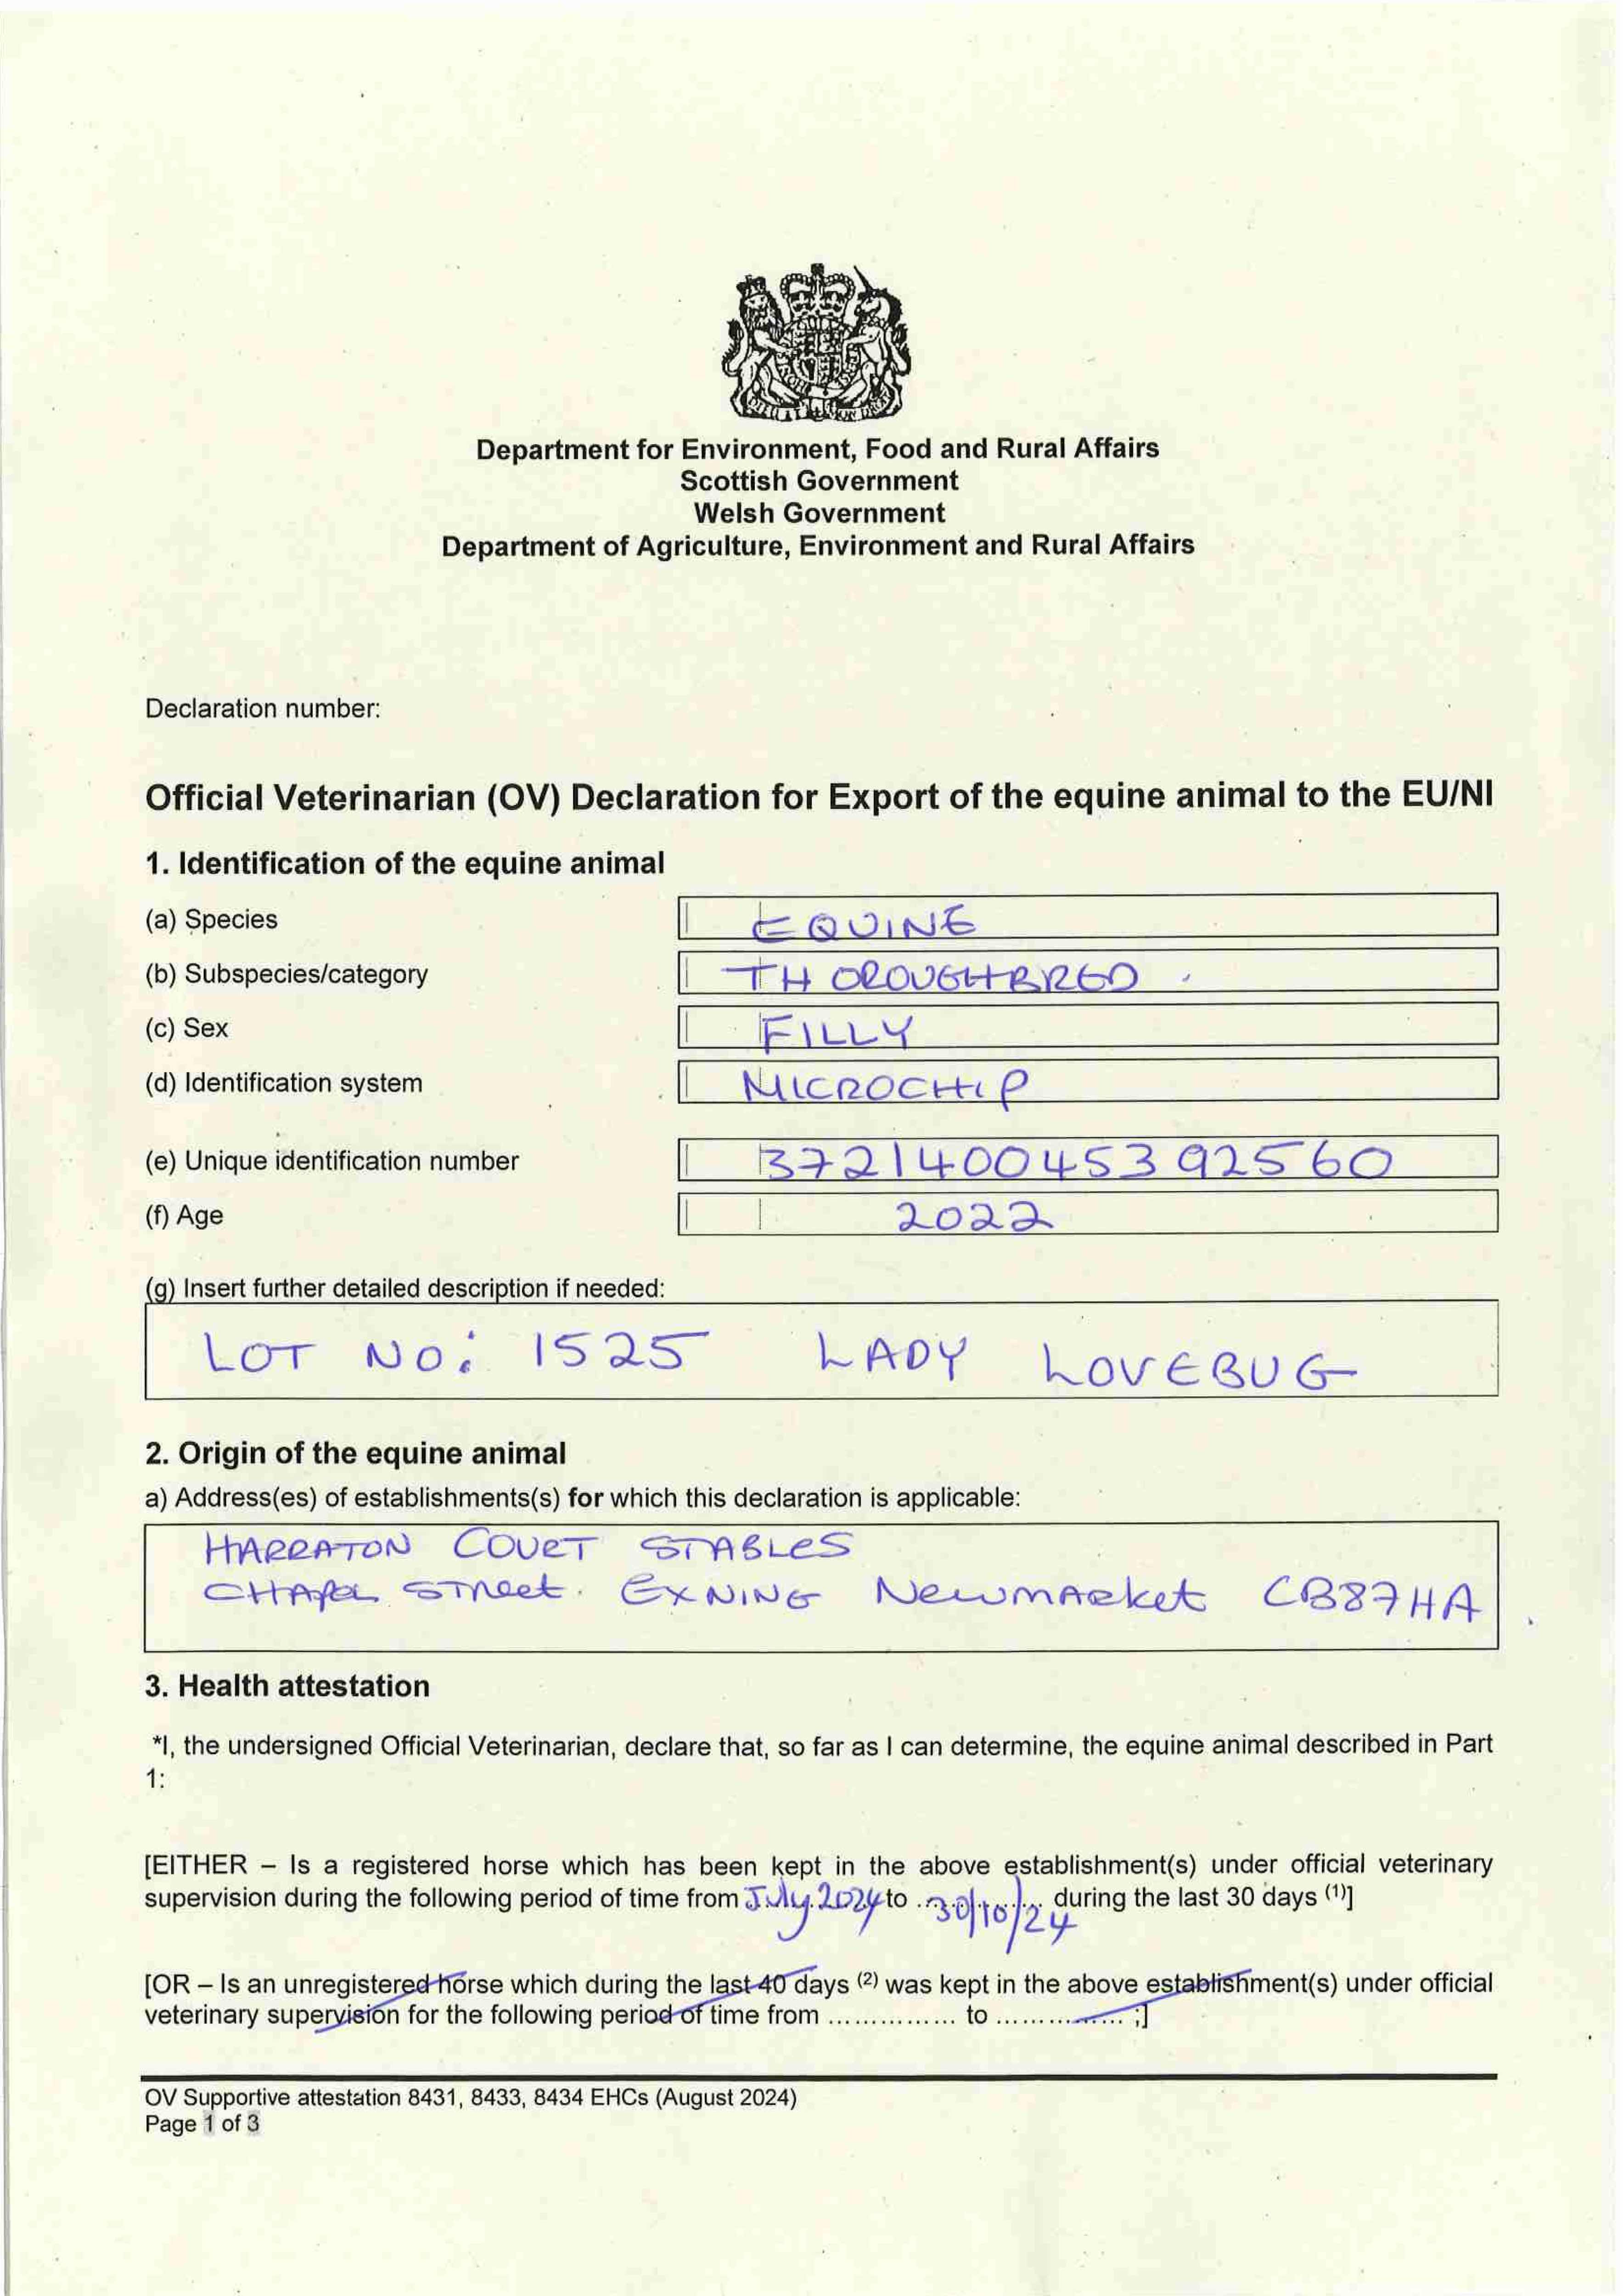 Department for Environment, Food and Rural Affairs
Scottish Government
Welsh Government
Department of Agriculture, Environment and Rural Affairs
Declaration number:
Official Veterinarian (OV) Declaration for Export of the equine animal to the EU/NI
1. Identification of the equine animal
(a) Species EQUINE
(b) Subspecies/category THOROUGHBRED
(c) Sex FILLY
(d) Identification system MICROCHIP
(e) Unique identification number 372140045392560
(f) Age 2022
(g) Insert further detailed description if needed:
LOT NO: 1525 LADY LOVEBUG
2. Origin of the equine animal
a) Address(es) of establishments(s) for which this declaration is applicable:
HARRATON COURT STABLES
CHAPEL STREET. EXNING NEWMARKET CB87HA
3. Health attestation
*I, the undersigned Official Veterinarian, declare that, so far as I can determine, the equine animal described in Part
1:
[EITHER – Is a registered horse which has been kept in the above establishment(s) under official veterinary
supervision during the following period of time from July 2024 to 30/10/24 during the last 30 days (1)]
[OR – Is an unregistered horse which during the last 40 days (2) was kept in the above establishment(s) under official
veterinary supervision for the following period of time from ............... to ............... ;]
OV Supportive attestation 8431, 8433, 8434 EHCs (August 2024)
Page 1 of 3